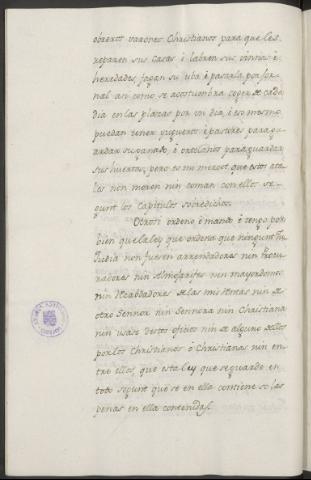 obreros varones Christianos para que les
reparen sus casas é labren sus vinnas é
heredades, fagan su uba é pasarla por jor-
nal asi como se acostumbra coger de cada
dia en las plazas por un dia, é eso mesmo
puedan tener yugueros é pastores para gu-
ardar su ganado, é ortolanos para guardar
sus huertos, pero es mi merced que estos ata-
les nin moren nin coman con ellos se-
gunt los Capitulos sobredichos.
Otrosi ordeno é mando é tengo por
bien que la ley que ordena que ningunt Ju
Judia non fuesen arrendadores nin Procu-
radores nin Almojarifes nin mayordomos
nin Recabdadores de las mis Rentas nin de
otro Sennor nin Sennora nin Christiana
nin usase destos oficios nin de alguno dellos
por los Christianos ó Christianas nin en-
tre ellos, que esta ley que se guarde en
todo segunt que se en ella contiene so las
penas en ella contenidas.